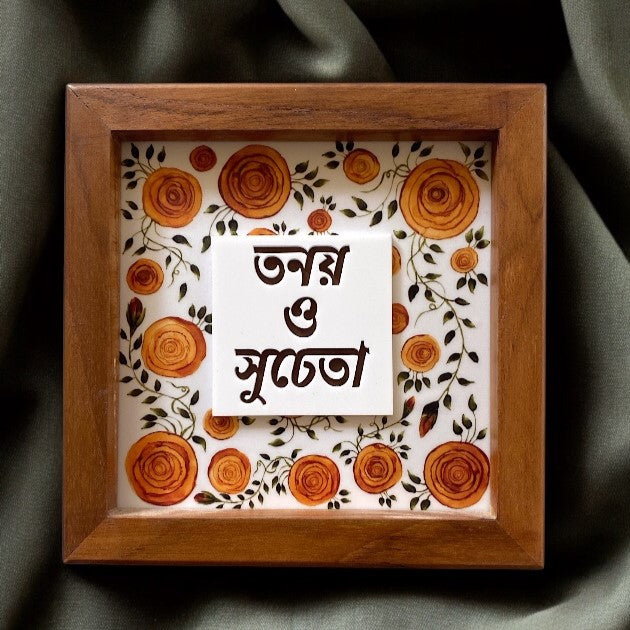 তনয়
ও
সুচেতা